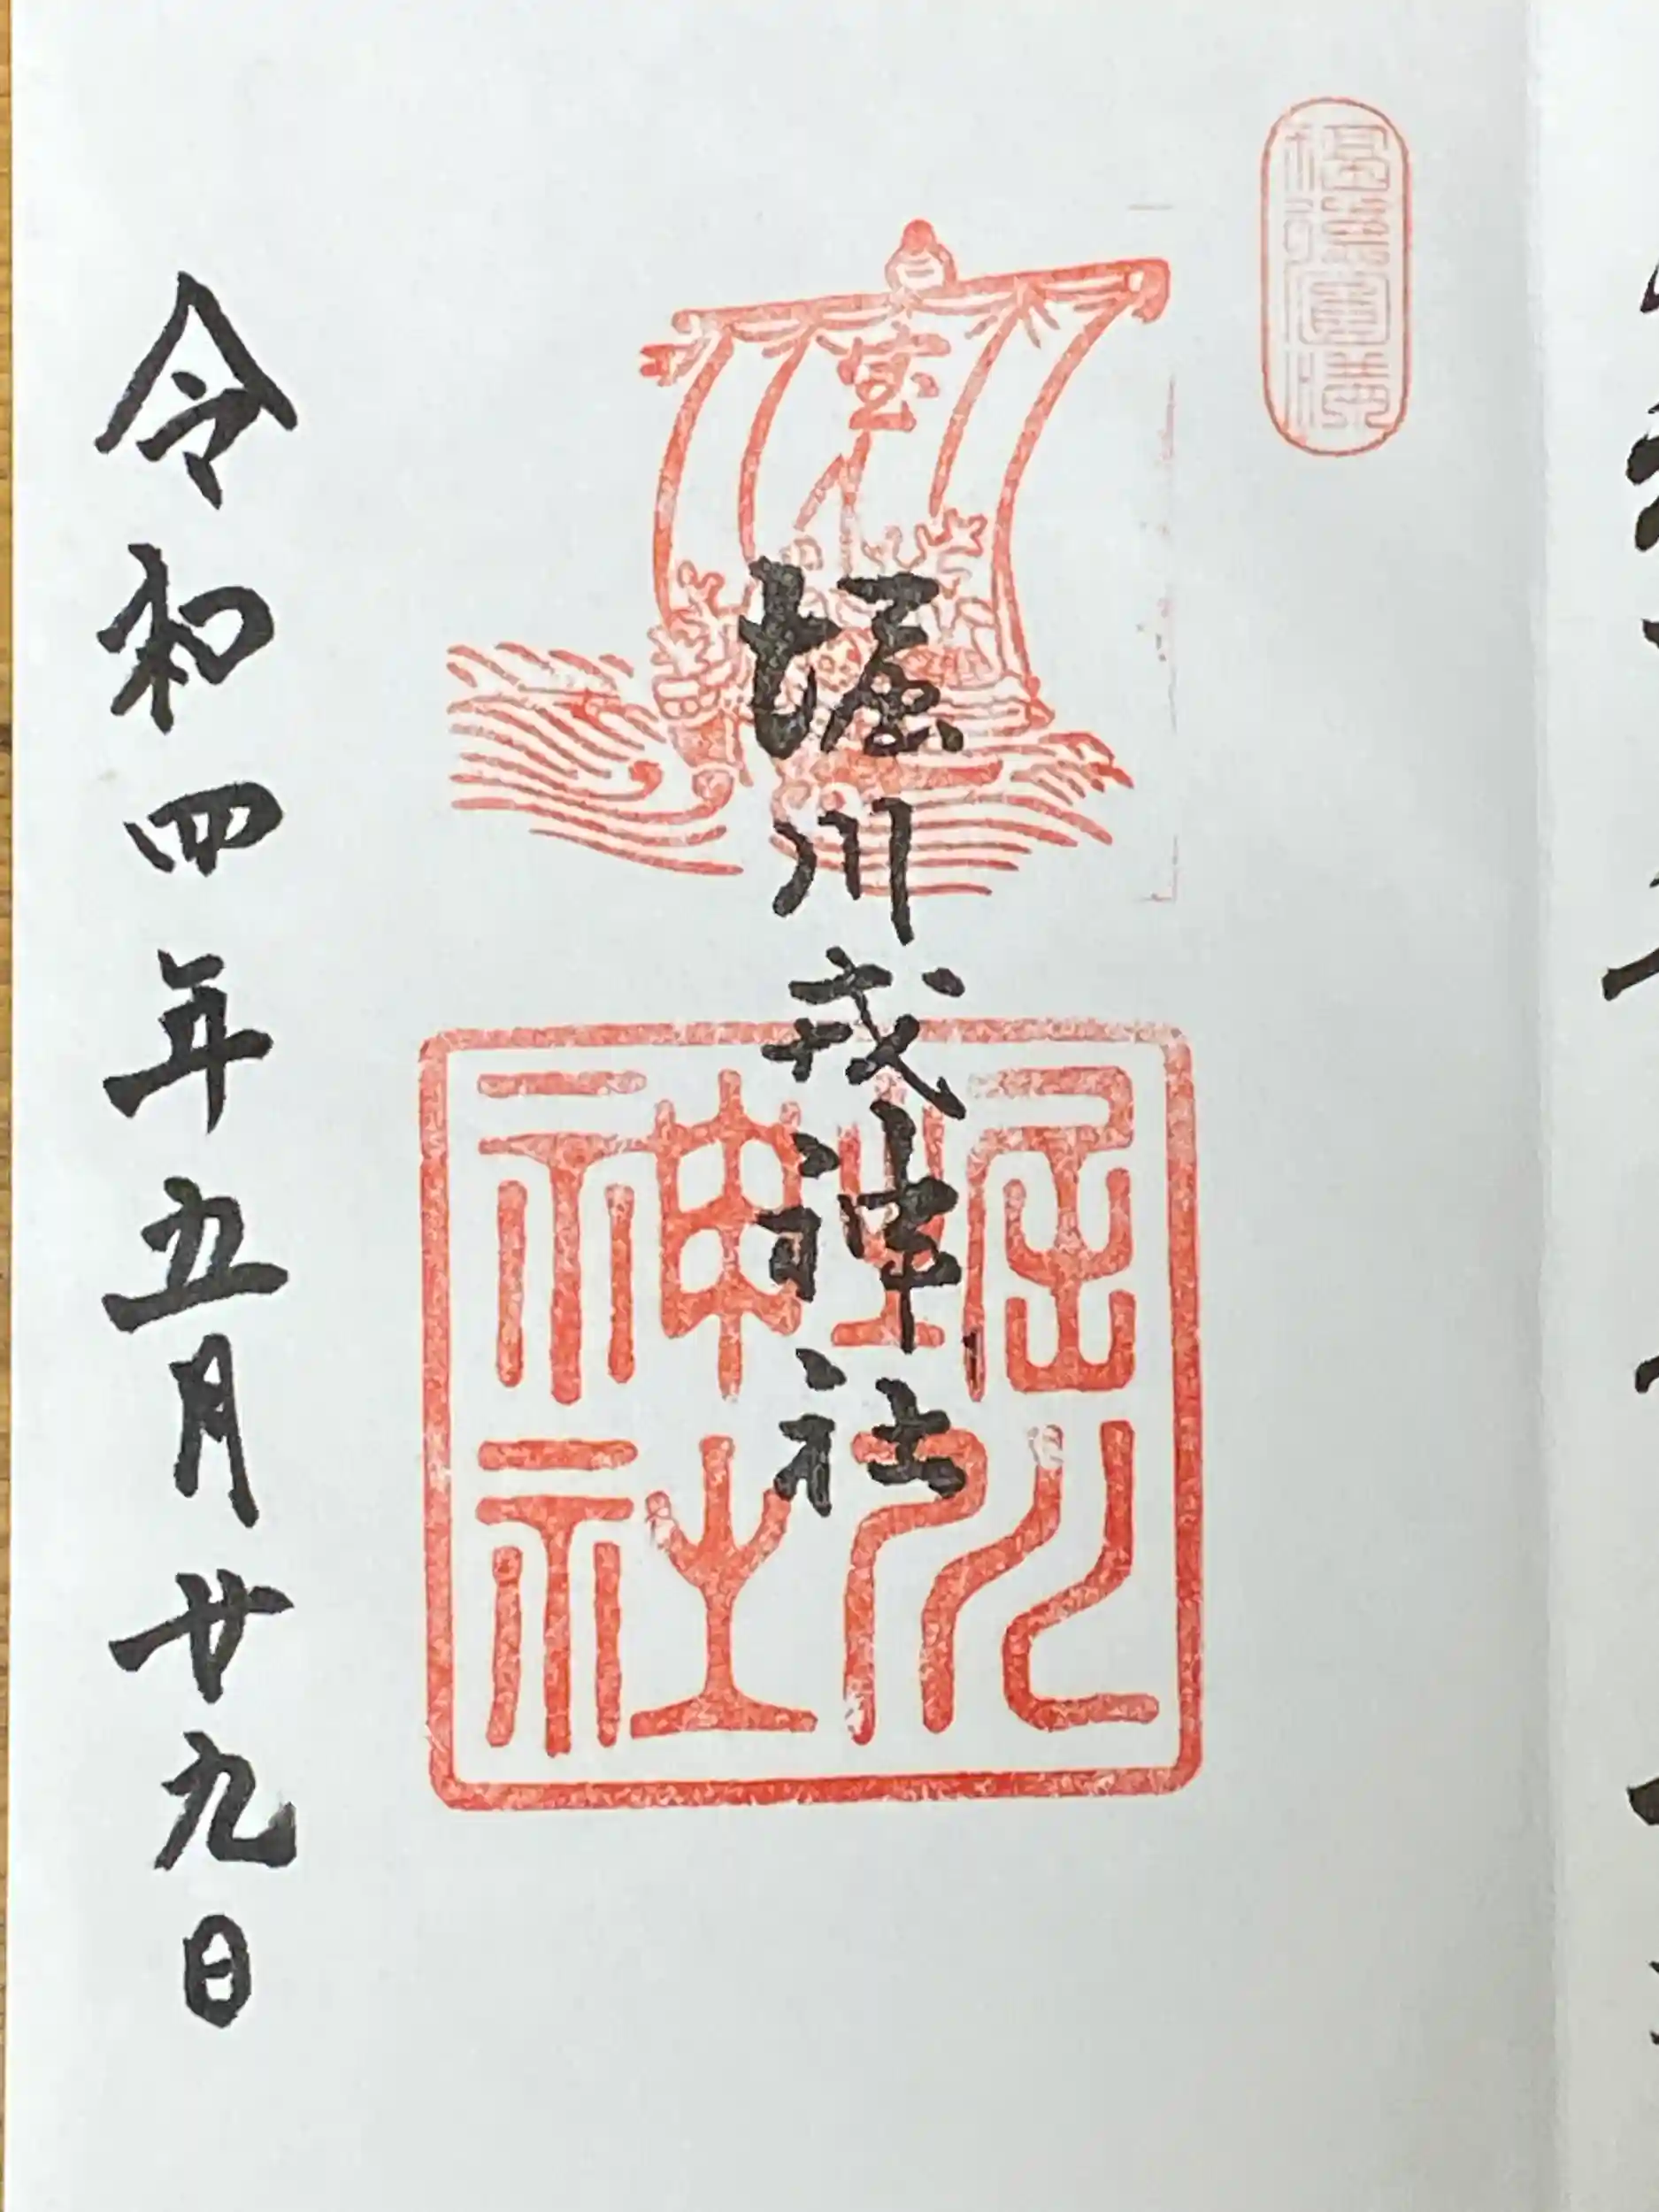 福徳円満
宝
堀川戎神社
堀川
神社
令和四年五月廿九日